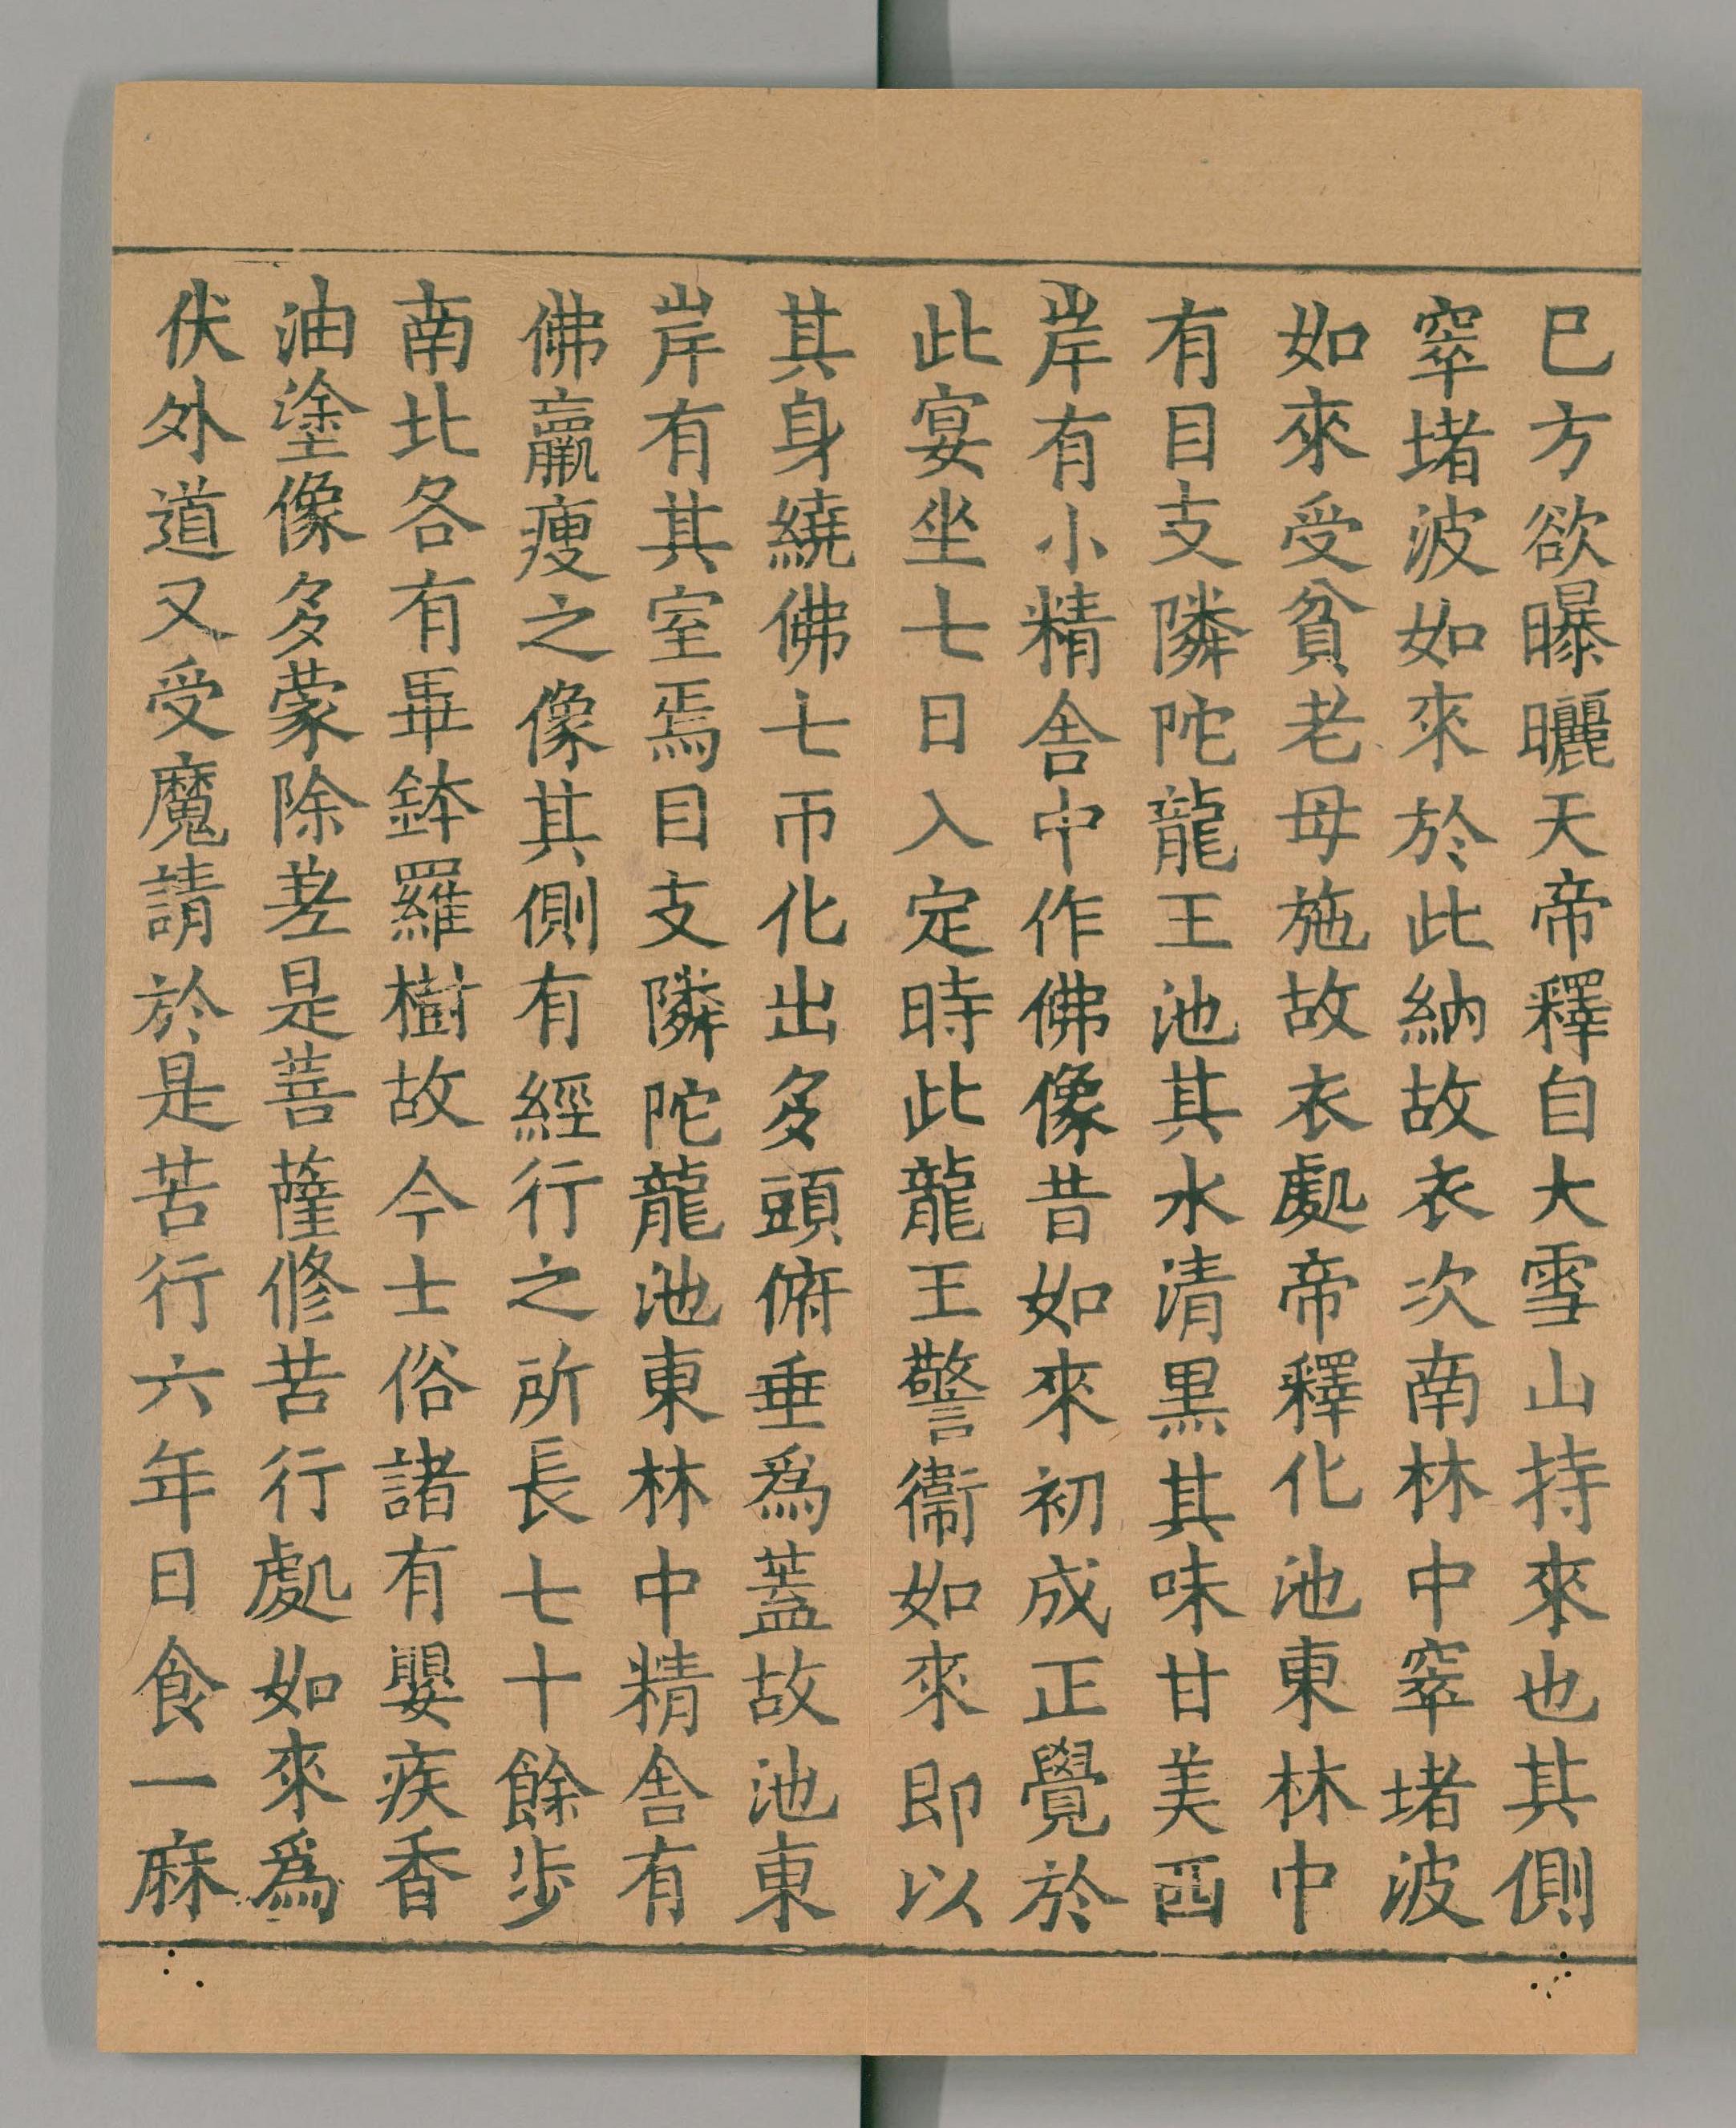 已方欲曝曬天帝釋自大雪山持來也其側
窣堵波如來於此納故衣次南林中窣堵波
如來受貧老母施故衣處帝釋化池東林中
有目支隣陀龍王池其水清黑其味甘美西
岸有小精舍中作佛像昔如來初成正覺於
此宴坐七日入定時此龍王警衞如來即以
其身繞佛七帀化出多頭俯垂爲蓋故池東
岸有其室焉目支隣陀龍池東林中精舍有
佛羸瘦之像其側有經行之所長七十餘步
南北各有畢鉢羅樹故今士俗諸有嬰疾香
油塗像多蒙除差是菩薩修苦行處如來爲
伏外道又受魔請於是苦行六年日食一麻